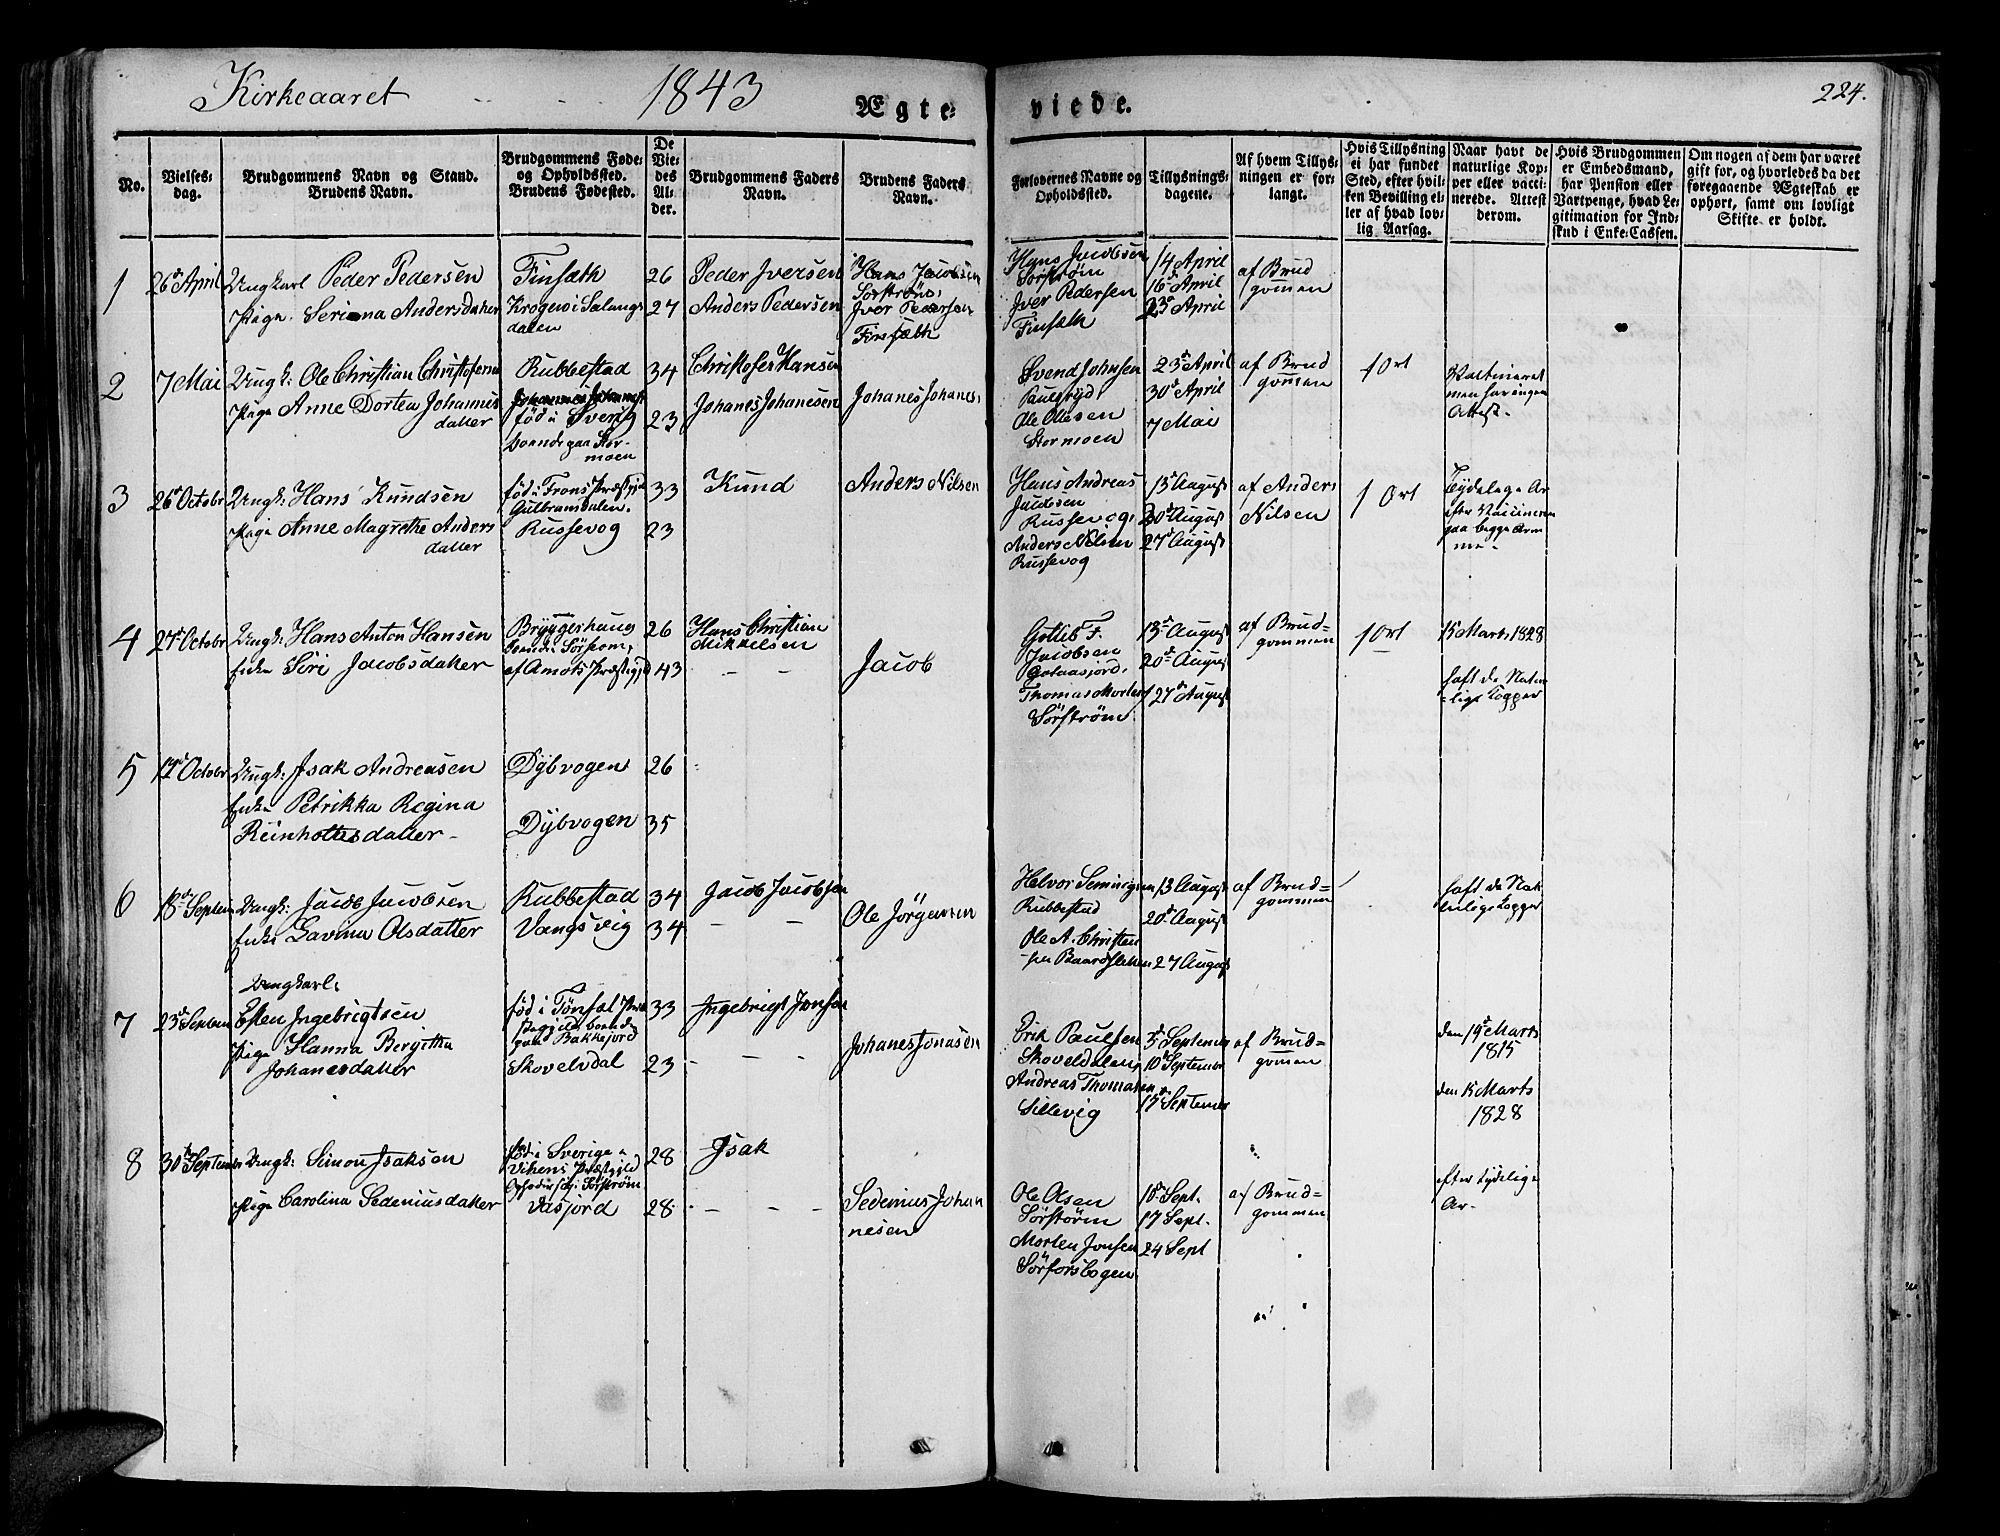 Kirkeaaret 1843 Ægte-
viede.
224.
No.
Vielses-
dag.
Brudgommens Navn og Stand.
Brudens Navn.
Brudgommens Føde-
og Opholdssted.
Brudens Fødested.
De
Vie-
des
Al-
der.
Brudgommens Faders
Navn.
Brudens Faders
Navn.
Forlovernes Navne og
Opholdssted.
Tillysnings-
dagene.
Af hvem Tillys-
ningen er for-
langt.
Hvis Tillysning
ei har fundet
Sted, efter hvil-
ken Bevilling el-
ler af hvad lov-
lig Aarsag.
Naar havt de
naturlige Kop-
per eller vacci-
nerede. Attest
derom.
Hvis Brudgommen
er Embedsmand,
har Pension eller
Vartpenge, hvad Le-
gitimation for Ind-
skud i Enke-Cassen.
Om nogen af dem har været
gift før, og hvorledes da det
foregaaende Ægteskab er
ophørt, samt om lovligt
Skifte er holdt.
1
26de April
Ungkarl Peder Pedersen
Pige Seriana Andersdatter
Finsæth
Krogen i Salangs
dalen
26
27
Peder Iversen
Anders Pedersen
Hans Jacobsen
Sørstrøm
Iver Pedersen
Finsæth
Hans Jacobsen
Sørstrøm
Iver Pedersen
Finsæth
14 April
16de April
23de April
af Brud
gommen
2
7 Mai
Ungk: Ole Christian Christofersen
Pige Anne Dortea Johannes
datter
Rubbestad
fød i Sverig
boende paa Stor-
moen
34
23
Christofer Hansen
Johanes Johanesen
Johanes Johanes
Svend Johnsen
Ole Olesen
Stormoen
23de April
30de April
7 Mai
af Brud
gommen
1 Ort
Attest-
3
26de Octobr
Ungk: Hans Knudsen
Pige Anne Magrethe Anders
datter
fød i Frons Præstgj
Gulbransdalen
Russevog
33
23
Knud
Anders Nilsen
Hans Andreas
Judsen
Russevog
Anders Nilsen
Russevog
13de August
20de August
27de August
af Anders
Nilsen
1 Ort
Tydelige Ar
efter Vaccineren
paa begge Arm
me-
4
27de Octobr
Ungk: Hans Anton Hansen
Enke Siri Jacobsdatter
Bryggeshaug
boende Sørstrøm
af Amots Præstgjd
26
43
Hans Christian
Mikkelsen
Jacob
Gotlieb F.
Jacobsen
Thomas Morten
Sørstrøm
13de August
20de August
27de August
af Brud-
gommen
1 Ort
15 Marts 1828
haft de Natur
=lige Kopper
5
Octobr
Ungk: Isak Andreasen
Enke Petrikka Regina
Reinholtesdatter-
Dybvogen
Dybvogen
26
35
6
18de Septem
Ungk: Jacob Jacobsen
Enke Lavina Olsdatter
Rubbestad
Vangsvig
34
34
Jacob Jacobsen
Ole Jörgensen
Helvor Semingsen
Rubbestad
Ole A. Christen
sen Baardsletten
13 August
20de August
27 August
af Brud=
gommen
haft de Nat
urlige Kopper
7
23de Septem
Ungkarl:
Esten Ingebrigtsen
Pige Hanna Bergitha
Johanesdatter
fød i Tønsæt Præ
stegjeld boende
paa Bakkejord
Skovelvdal
33
23
Ingebrigt Jonsen
Johanes Jonasen
Erik Paulsen
Skoveldalen
Andreas Thomasen
Sillevig
3de September
10de September
17de September
af Brud=
gommen
den 19de Marts
1815
den 15 Marts
1828
8
30te September
Ungk: Simon Isaksen
Pige Carolina Sedeniusdatter
fød i Sverige
Vihens Præstgjeld
Opholder sig i Sørstrøm
Vasjord
28
28
Isak
Sedenius Johan
nesen
Ole Olsen
Sørstrøm
Morten Jonsen
Sørforsbogen
10de Sept.
17 Sept.
24 Sept
af Brud=
gommen
efter tydelige
Ar-